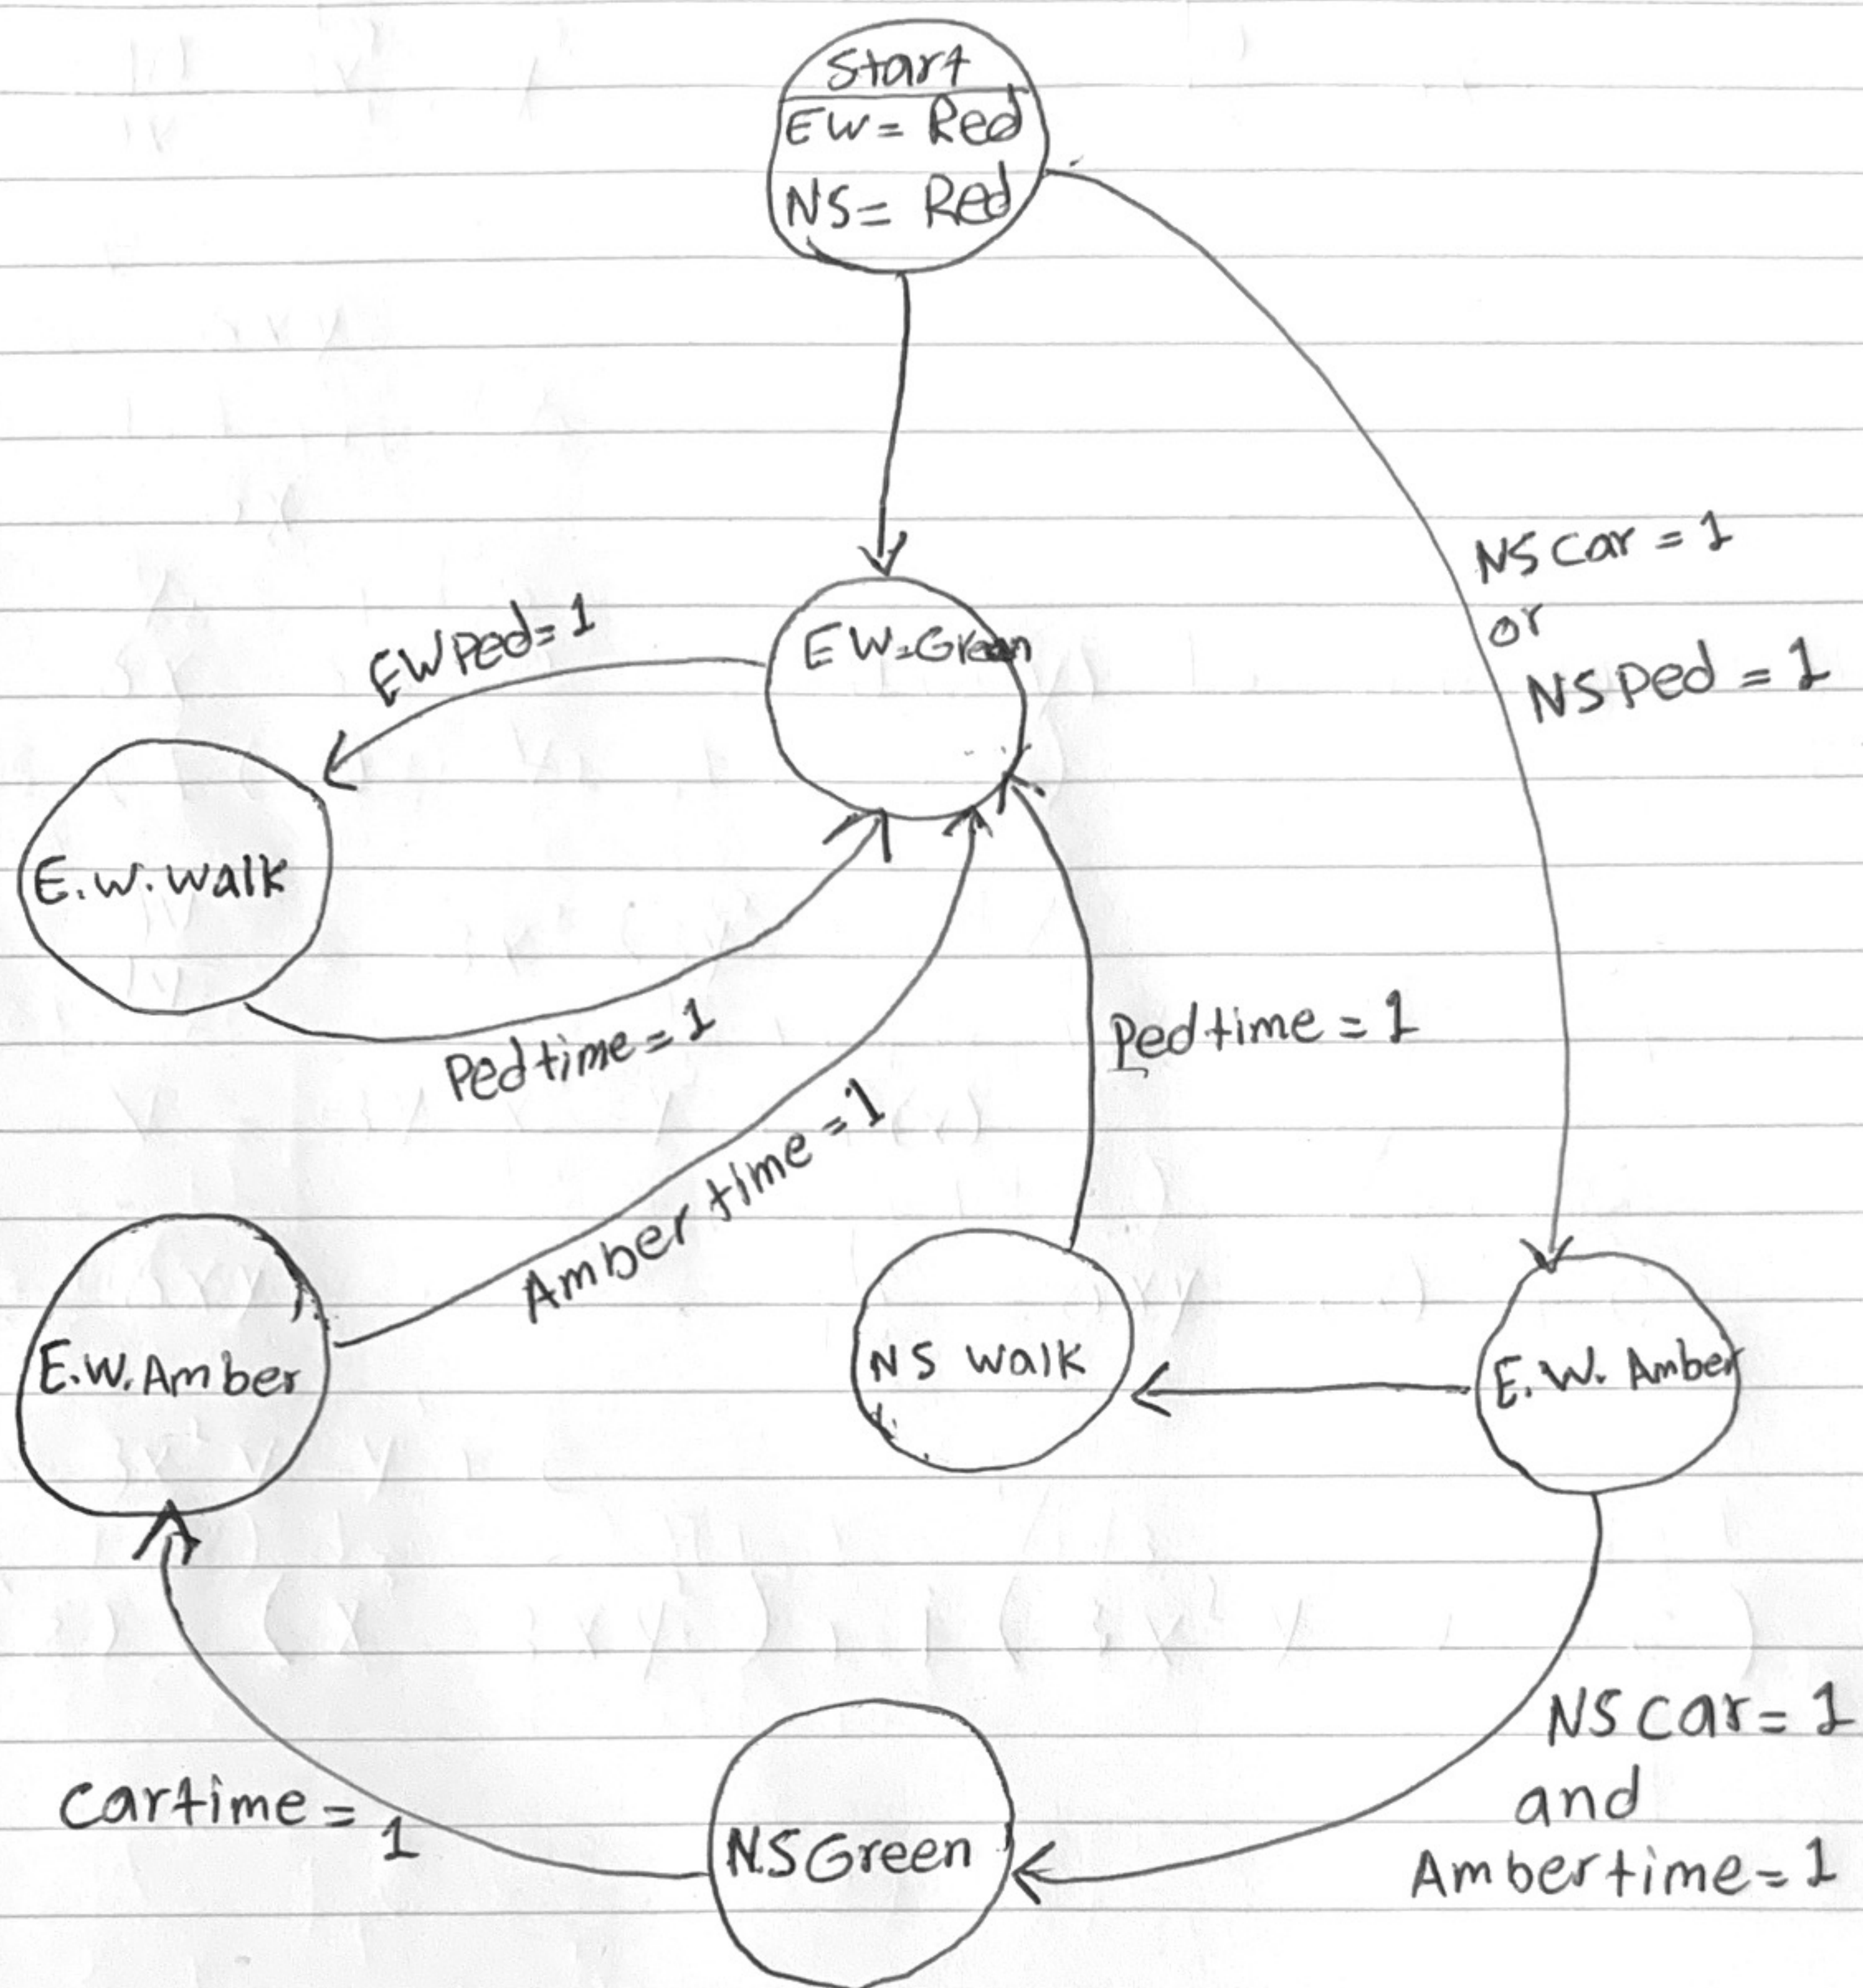 Start
EW = Red
NS = Red
NS car = 1
or
NS Ped = 1
EW Ped = 1
EW=Green
E.W. Walk
Ped time = 1
Ped time = 1
Amber time = 1
E.W. Amber
NS Walk
E.W. Amber
NS car = 1
and
Amber time = 1
Car time = 1
NS Green